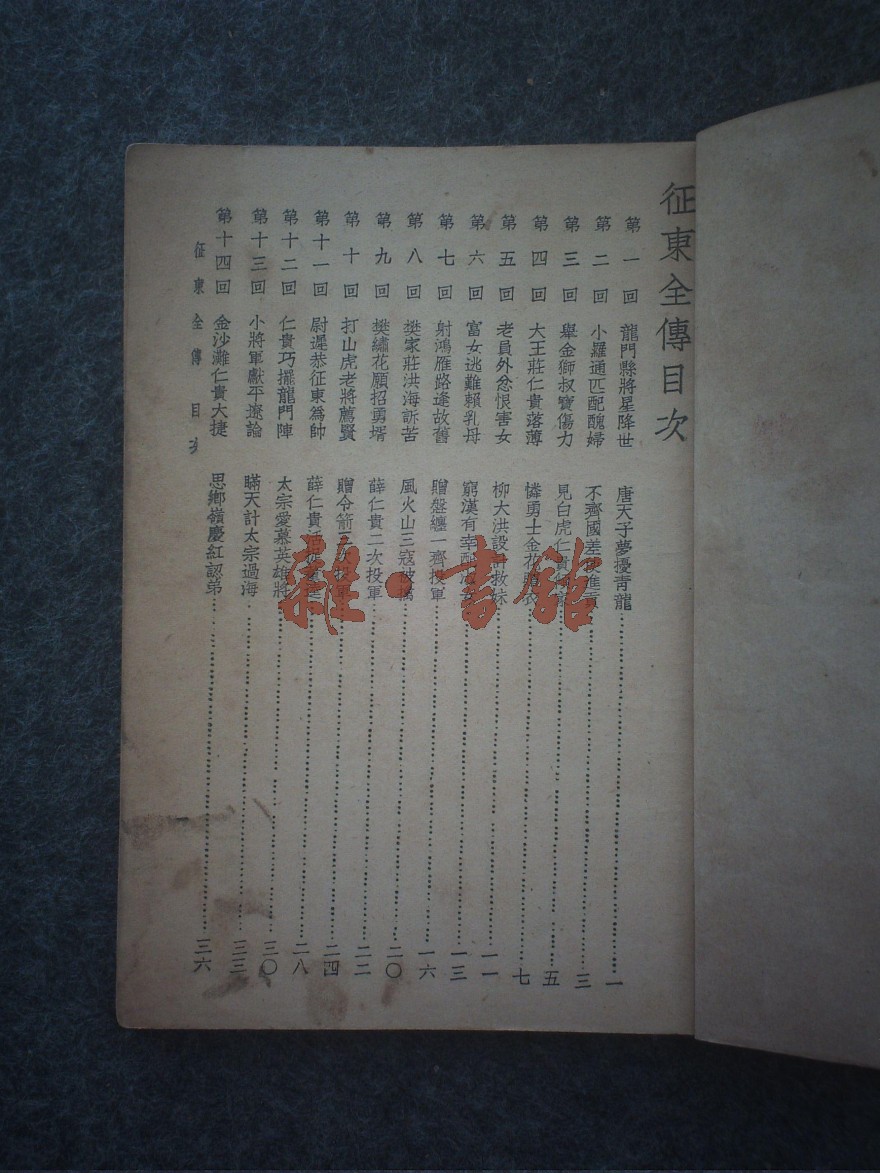 征東全傳目次
第一回 龍門縣將星降世 唐天子夢擾靑龍 一
第二回 小羅通匹配醜婦 不齊國差使進貢 三
第三回 舉金獅叔寶傷力 見白虎仁貴 五
第四回 大王莊仁貴落薄 憐勇士金花贈衣 七
第五回 老員外忿恨害女 柳大洪設計救妹 一一
第六回 富女逃難賴乳母 窮漢有幸配 一三
第七回 射鴻雁路逢故舊 贈盤纏一齊投軍 一六
第八回 樊家莊洪海訴苦 風火山三寇被擒 二〇
第九回 樊繡花願招勇壻 薛仁貴二次投軍 二二
第十回 打山虎老將薦賢 贈令箭三次投軍 二四
第十一回 尉遲恭征東爲帥 薛仁貴活捉董逵 二八
第十二回 仁貴巧擺龍門陣 太宗愛慕英雄將 三〇
第十三回 小將軍獻平遼論 瞞天計太宗過海 三三
第十四回 金沙灘仁貴大捷 思鄕嶺慶紅認弟 三六
征東全傳 目次
雜·書館